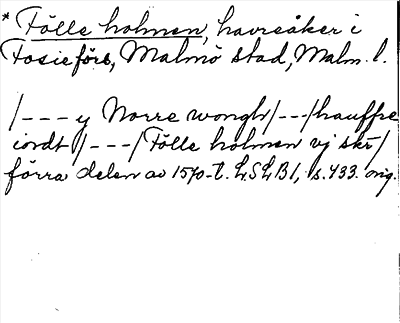 * Fölle holmen, havreåker i
Fosie förs, Malmö stad, Malm. l.
/--- y Norre wongh/---/hauffre
iordt/---/Fölle holmen vj skr/
förra delen av 1570-t. LSLB 1, s. 433. orig.